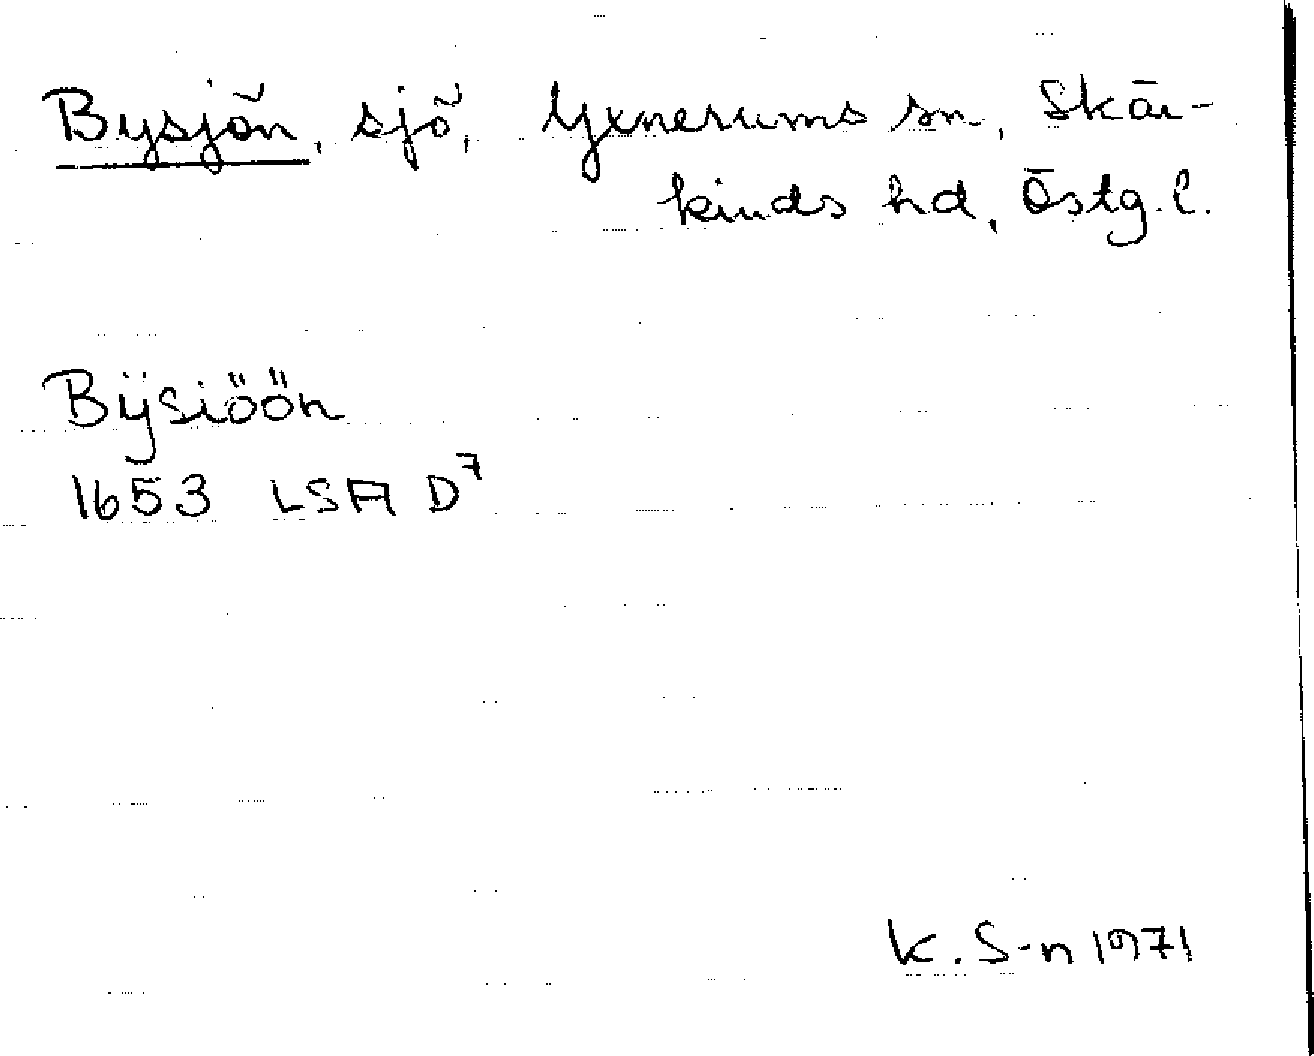 Bysjön, sjö, Yxnerums sn, Skär-
kinds hd, Östg. l.
Bÿsiöön
1653 LSA D⁷
K. S-n 1971